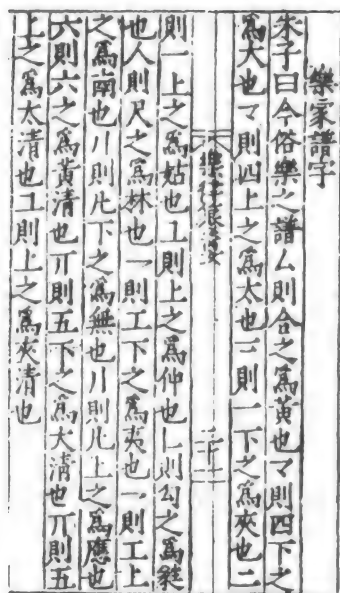 樂家譜字
朱子曰今俗樂之譜厶則合之爲黃也マ則四下之
爲大也マ則四上之爲太也二則一下之爲夾也二
則一上之爲姑也工則上之爲仲也乚則勾之爲蕤
也人則尺之爲林也一則工下之爲夷也一則工上
之爲南也〢則凡下之爲無也〢則凡上之爲應也
六則六之爲黃清也丌則五下之爲大清也丌則五
上之爲太清也工則上之爲夾清也